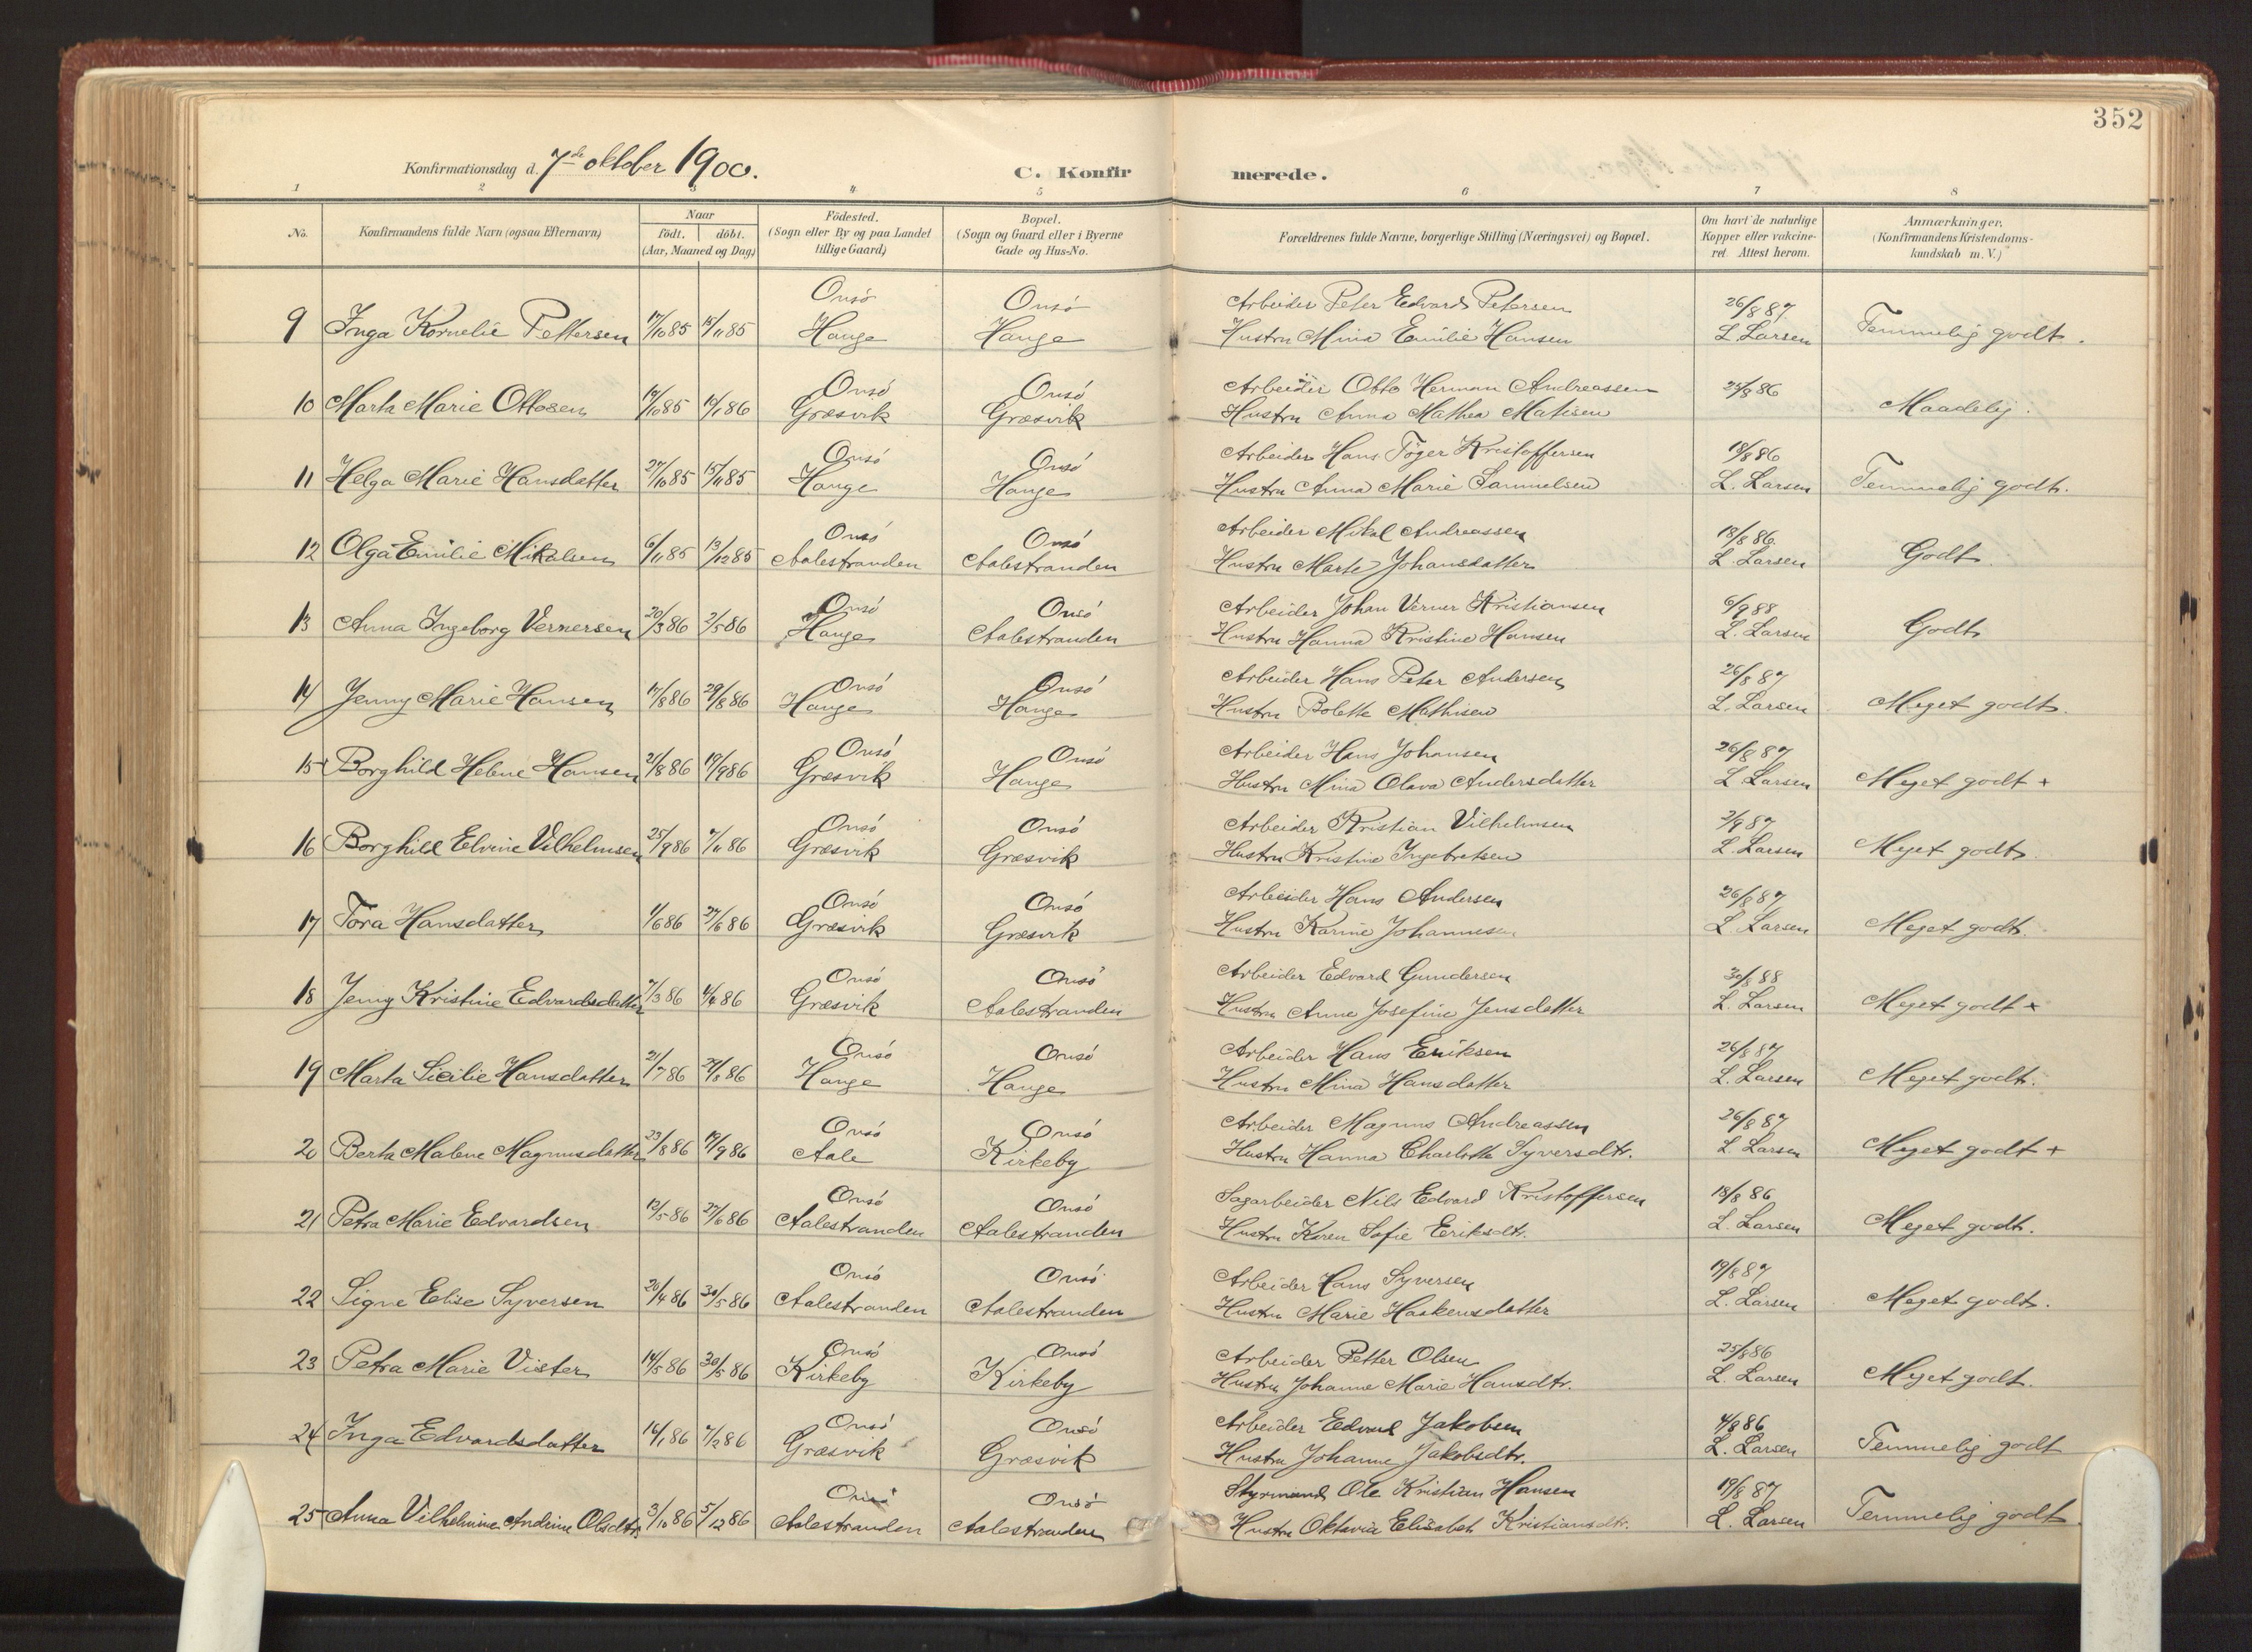 352
Konfirmationsdag d. 7de oktober 1900.
C. Konfirmerede.
1 2 3 4 5 6 7 8
No.
Konfirmandens fulde Navn (ogsaa Efternavn)
Naar
födt. döbt.
(Aar, Maaned og Dag)
Födested.
(Sogn eller By og paa Landet
tillige Gaard)
Bopæl.
(Sogn og Gaard eller i Byerne
Gade og Hus-No.
Forældrenes fulde Navne, borgerlige Stilling (Næringsvei) og Bopæl.
Om havt de naturlige
Kopper eller vakcine-
ret. Attest herom.
Anmærkninger.
(Konfirmandens Kristendoms-
kundskab m. V.)
Onsö Onsö Arbeider Peter Edvard Petersen 26/8 87
9 Inga Kornelie Pettersen 17/10 85 15/11 85 Hauge Hauge Hustru Mina Emilie Hansen L Larsen Temmelig godt.
Onsö Onsö Arbeider Otto Herman Andreassen 25/8 86
10 Marta Marie Ottosen 14/10 85 Græsvik Græsvik Hustru Anna Mathea Matisen Maadelig.
Onsö Onsö Arbeider Hans Töger Kristoffersen 18/8 86
11 Helga Marie Hansdatter 27/10 85 15/11 85 Hauge Hauge Hustru Anna Marie Samuelsen L. Larsen Temmelig godt.
Onsö Onsö Arbeider Mikal Andreassen 18/8 86
12 Olga Emilie Mikalsen 6/11 85 13/12 85 Aalestranden Aalestranden Hustru Marte Johansdatter L. Larsen Godt.
Onsö Onsö Arbeider Johan Verner Kristiansen 6/9 88
13 Anna Ingeborg Vernersen 20/3 86 2/5 86 Hauge Aalestranden Hustru Hanna Kristine Hansen L. Larsen Godt
Onsö Onsö Arbeider Hans Peter Andersen 26/8 87
14 Jenny Marie Hansen 17/8 86 29/8 86 Hauge Hauge Hustru Bolette Mathisen L. Larsen Meget godt.
Onsö Onsö Arbeider Hans Johansen 26/8 87
15 Borghild Helene Hansen 21/8 86 19/9 86 Græsvik Hauge Hustru Mina Olava Andersdatter L Larsen Meget godt +
Onsö Onsö Arbeider Kristian Vilhelmsen 2/9 87
16 Borghild Elvine Vilhelmsen 25/9 86 7/11 86 Græsvik Græsvik Hustru Kristine Ingebretsen L. Larsen Meget godt.
Onsö Onsö Arbeider Hans Andersen 26/8 87
17 Tora Hansdatter 1/6 86 27/6 86 Græsvik Græsvik Hustru Karine Johannesen L. Larsen Meget godt.
Onsö Onsö Arbeider Edvard Gundersen 30/8 88
18 Jenny Kristine Edvardsdatter 7/3 86 Græsvik Aalestranden Hustru Anne Josefine Jensdatter L. Larsen Meget godt +
Onsö Onsö Arbeider Hans Eriksen 26/8 87
19 Marta Sicilie Hansdatter 21/7 86 29/8 86 Hauge Hauge Hustru Mina Hansdatter L. Larsen Meget godt.
Onsö Onsö Arbeider Magnus Andreassen 26/8 87
20 Berta Malene Magnusdatter 23/8 86 19/9 86 Aale Kirkeby Hustru Hanna Charlotte Syversdtr. L Larsen Meget godt +
Onsö Onsö Sagarbeider Nils Edvard Kristoffersen 18/8 86
21 Petra Marie Edvardsen 12/5 86 27/6 86 Aalestranden Aalestranden Hustru Karen Sofie Eriksdtr. L. Larsen Meget godt.
Onsö Onsö Arbeider Hans Syversen 19/8 87
22 Signe Elise Syversen 20/4 86 30/5 86 Aalestranden Aalestranden Hustru Marie Haakensdatter L. Larsen Meget godt.
Onsö Onsö Arbeider Petter Olsen 25/8 86
23 Petra Marie Vister 14/5 86 30/5 86 Kirkeby Kirkeby Hustru Johanne Marie Hansdtr. L. Larsen Meget godt.
Onsö Onsö Arbeider Edvard Jakobsen 4/8 86
24 Inga Edvardsdatter 16/1 86 7/2 86 Græsvik Græsvik Hustru Johanne Jakobsdtr. L. Larsen Temmelig godt
Onsö Onsö Styrmand Ole Kristian Hansen 19/8 87
25 Anna Vilhelmine Andrine Olsdtr 3/10 86 5/12 86 Aalestranden Aalestranden Hustru Oktavia Elisabet Kristiansdtr. L. Larsen Temmelig godt.